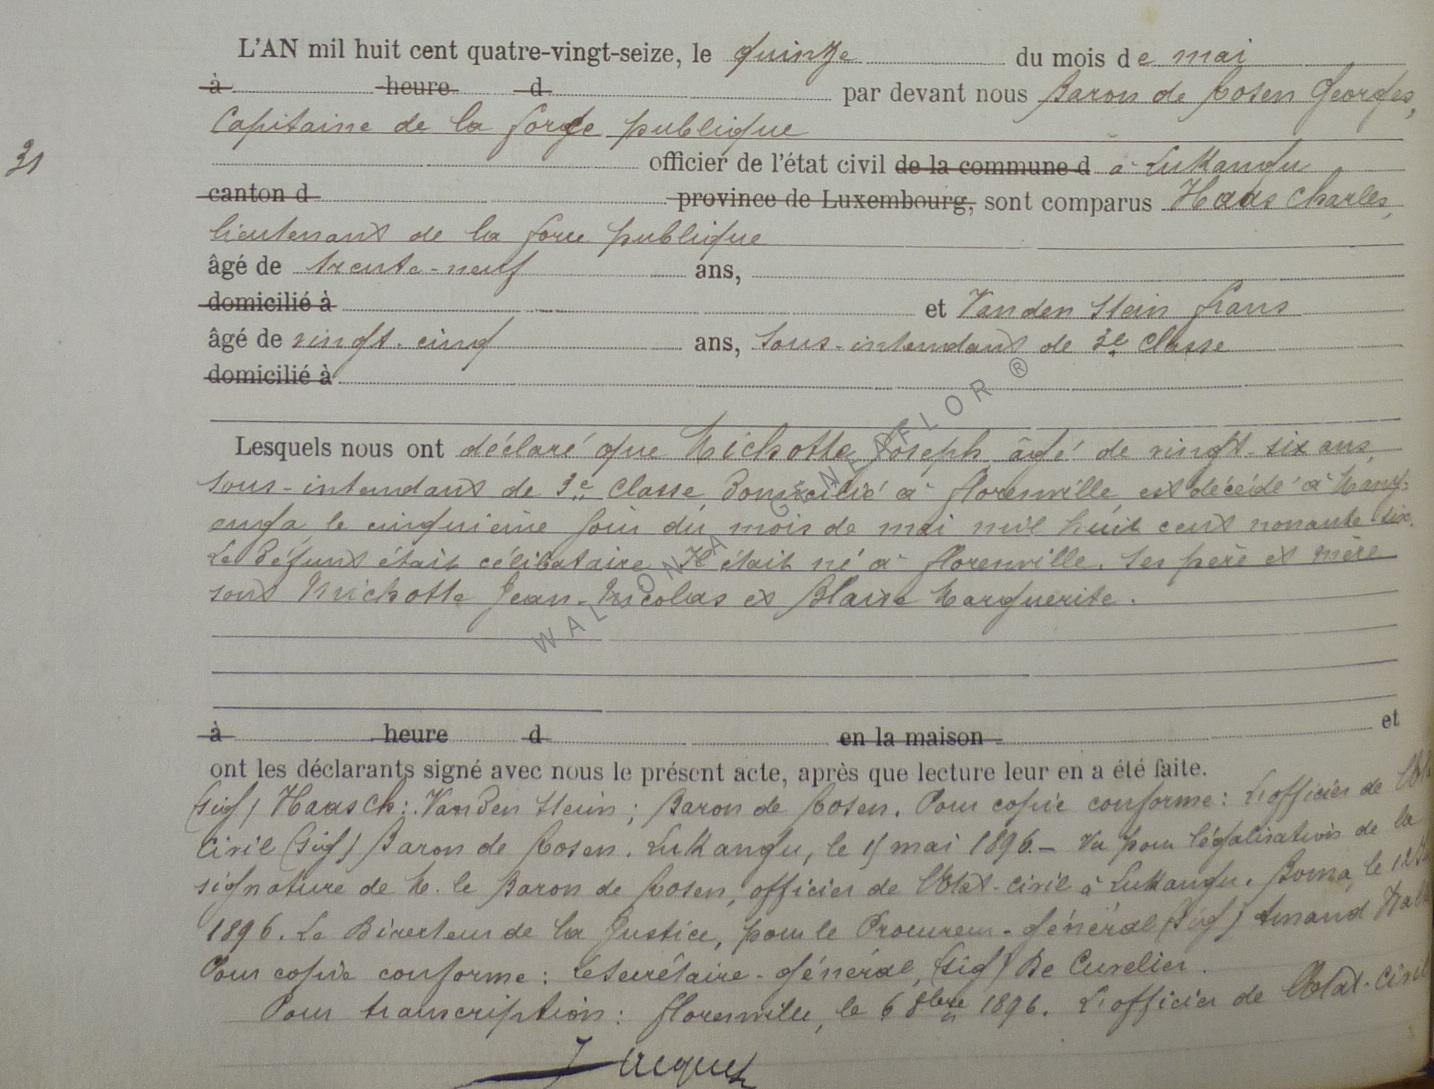 L'AN mil huit cent quatre-vingt-seize, le quinze du mois de mai
à heure d par devant nous Baron de Rosen Georges,
Capitaine de la force publique
31
officier de l'état civil de la commune d à Lukandu
canton d province de Luxembourg, sont comparus Haas Charles,
lieutenant de la force publique
âgé de trente-neuf ans,
domicilié à et Vanden Stein frans
âgé de vingt-cinq ans, Sous-intendant de 3e Classe
domicilié à
Lesquels nous ont déclaré que Michotte Joseph âgé de vingt-six ans,
sous-intendant de 3e Classe Domicilié à florenville est décédé à
le cinquième jour du mois de mai mil huit cent nonante-six.
Le Défunt était célibataire Il était né à florenville. Ses père et mère
sont Michotte Jean-Nicolas et Blaise Marguerite.
à heure d en la maison et
ont les déclarants signé avec nous le présent acte, après que lecture leur en a été faite.
(sig) Haas Ch: Vanden Stein; Baron de Rosen. Pour copie conforme: L'officier de
Civil (sig) Baron de Rosen. Lukandu, le mai 1896.- Vu pour légalisation de la
signature de M. le Baron de Rosen, officier de l'Etat-civil à Lukandu. Boma, le 12
1896. Le Directeur de la Justice, pour le Procureur-général (sig) Amand
Pour copie conforme: Le Secrétaire-général, (sig) De Cuvelier.
Pour transcription: florenville, le 6 8bre 1896. L'officier de l'Etat-civil
J Jacques
WALLONIA GENEAFLOR ®